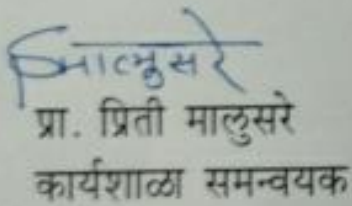 मालुसरे
प्रा. प्रिती मालुसरे
कार्यशाळा समन्वयक